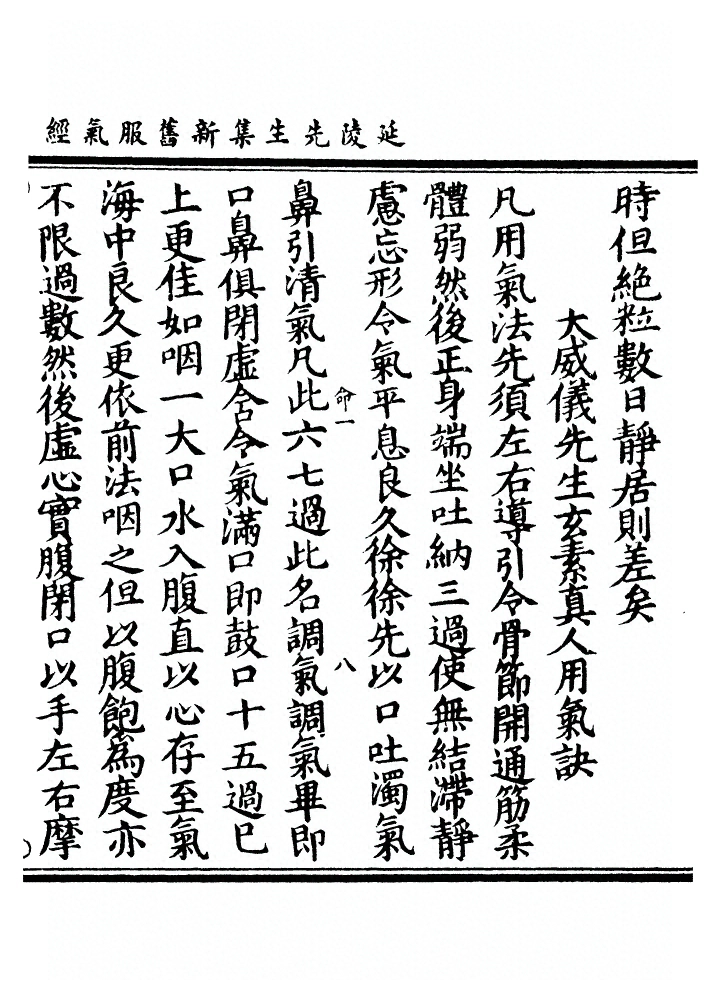 延陵先生集新舊服氣經
時但絶粒數日靜居則差矣
大威儀先生玄素真人用氣訣
凡用氣法先須左右導引令骨節開通筋柔
體弱然後正身端坐吐納三過使無結滯靜
慮忘形令氣平息良久徐徐先以口吐濁氣
命一
八
鼻引清氣凡此六七過此名調氣調氣畢即
口鼻俱閉虚含令氣滿口即鼓口十五過已
上更佳如咽一大口水入腹直以心存至氣
海中良久更依前法咽之但以腹飽為度亦
不限過數然後虛心實腹閉口以手左右摩